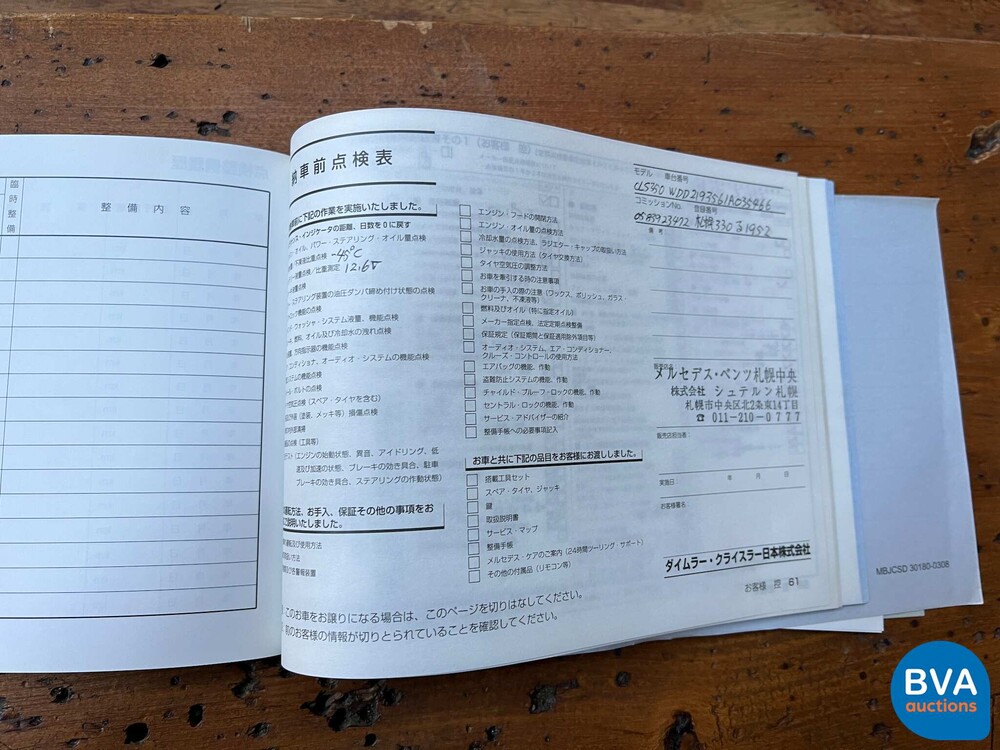 臨時整備
整備内容
納車前点検表
に下記の作業を実施いたしました。
ス・インジケータの距離、日数を0に戻す
オイル、パワー・ステアリング・オイル量点検
不凍液比重点検 -45℃
量点検/比重測定 12.6V
量点検
ステアリング装置の油圧ダンパ締め付け状態の点検
機能の点検
ウォッシャ・システム液量、機能点検
燃料、オイル及び冷却水の洩れ点検
方向指示器の機能点検
コンディショナ、オーディオ・システムの機能点検
システムの機能点検
ボルトの点検
空気圧点検(スペア・タイヤを含む)
(塗装、メッキ等)損傷点検
清掃
点検(工具等)
テスト(エンジンの始動状態、異音、アイドリング、低
速及び加速の状態、ブレーキの効き具合、駐車
ブレーキの効き具合、ステアリングの作動状態)
運転方法、お手入、保証その他の事項をお
ご説明いたしました。
運転及び使用方法
扱い方法
及び各警報装置
エンジン・フードの開閉方法
エンジン、オイル量の点検方法
冷却水量の点検方法、ラジエター・キャップの取扱い方法
ジャッキの使用方法(タイヤ交換方法)
タイヤ空気圧の調整方法
お車を牽引する時の注意事項
お車の手入の際の注意(ワックス、ポリッシュ、ガラス
クリーナ、不凍液等)
燃料及びオイル(特に指定オイル)
メーカー指定点検、法定定期点検整備
保証規定(保証期間と保証適用除外項目等)
オーディオ・システム、エア・コンディショナー、
クルーズ・コントロールの使用方法
エアバッグの機能、作動
盗難防止システムの機能、作動
チャイルド・プルーフ・ロックの機能、作動
セントラル・ロックの機能、作動
サービス・アドバイザーの紹介
整備手帳への必要事項記入
お車と共に下記の品目をお客様にお渡ししました。
搭載工具セット
スペア・タイヤ、ジャッキ
鍵
取扱説明書
サービス・マップ
整備手帳
メルセデス・ケアのご案内(24時間ツーリング・サポート)
その他の付属品(リモコン等)
モデル 車台番号
CLS350 WDD2193561A035966
コミッションNo. 登録番号
0585923972 札幌330 1952
備考
販売店名
メルセデス・ベンツ札幌中央
株式会社 シュテルン札幌
札幌市中央区北2条東14丁目
☎ 011-210-0777
販売店担当者:
実施日: 年 月 日
お客様署名:
ダイムラー・クライスラー日本株式会社
お客様 控 61
このお車をお譲りになる場合は、このページを切りはなしてください。
前のお客様の情報が切りとられていることを確認してください。
MBJCSD 30180-0308
BVA
auctions